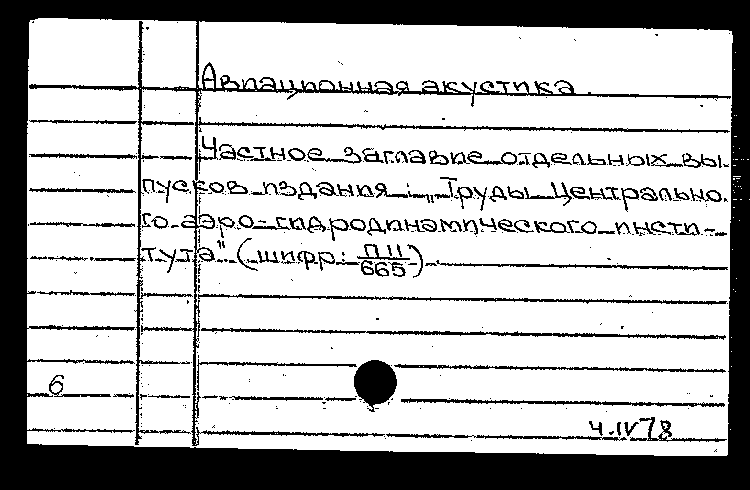 Авиационная акустика.
Частное заглавие отдельных вы
пусков издания: „Труды Центрально
го аэро-гидродинамического инсти-
тута" (шифр: П II/665).
6
4.IV 78